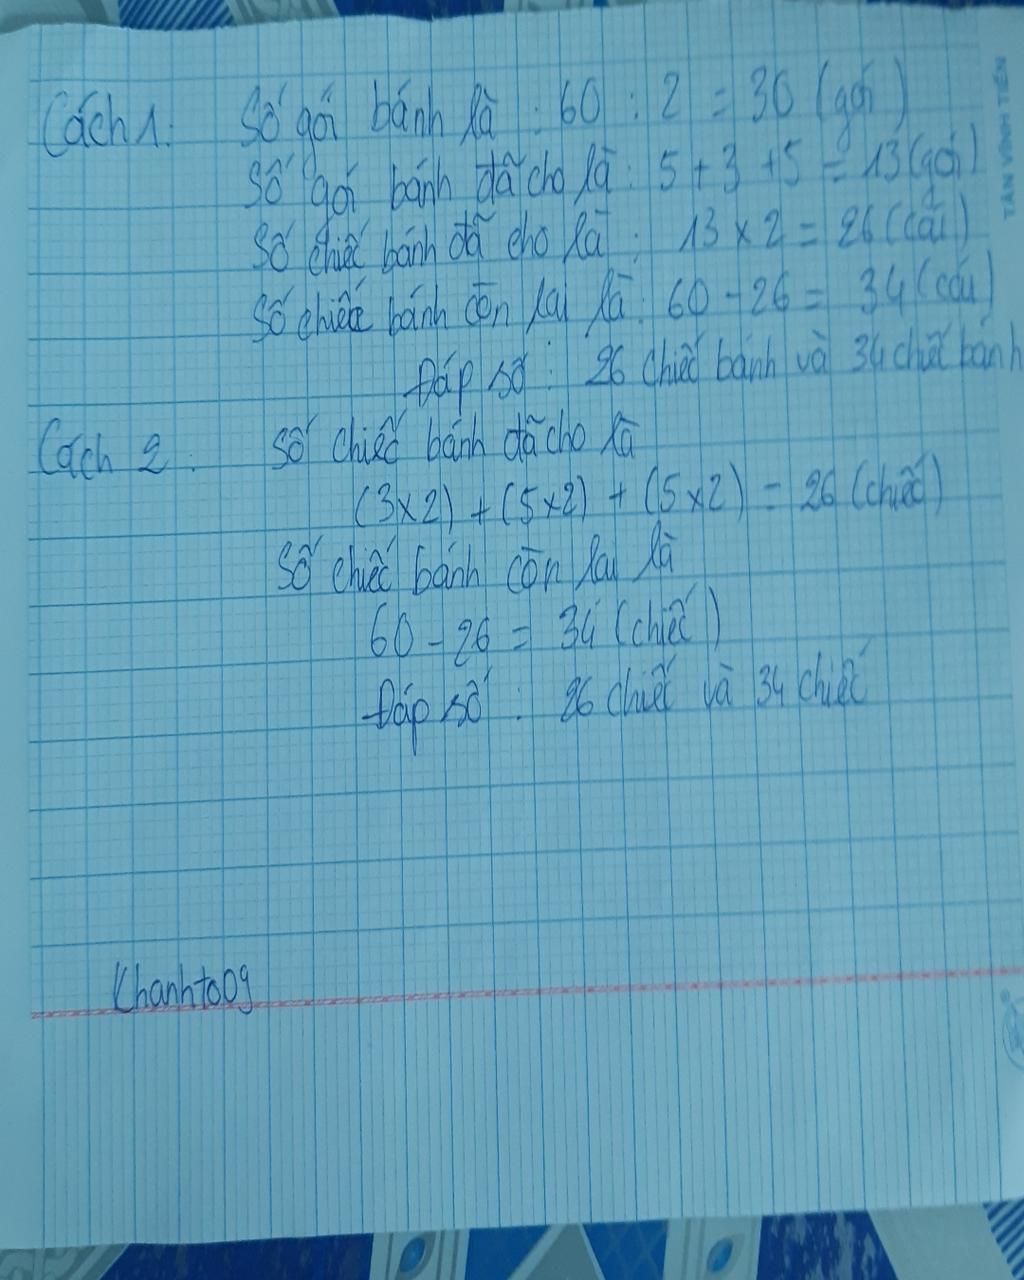 Cách 1. Số gói bánh là : 60 : 2 = 30 (gói)
Số gói bánh đã cho là : 5 + 3 + 5 = 13 (gói)
Số chiếc bánh đã cho là : 13 x 2 = 26 (cái)
Số chiếc bánh còn lại là : 60 - 26 = 34 (cái)
Đáp số : 26 chiếc bánh và 34 chiếc bánh
Cách 2. Số chiếc bánh đã cho là
(3x2) + (5x2) + (5x2) = 26 (chiếc)
Số chiếc bánh còn lại là
60 - 26 = 34 (chiếc)
Đáp số : 26 chiếc và 34 chiếc
Khanhto09
TÂN VĨNH TIẾN